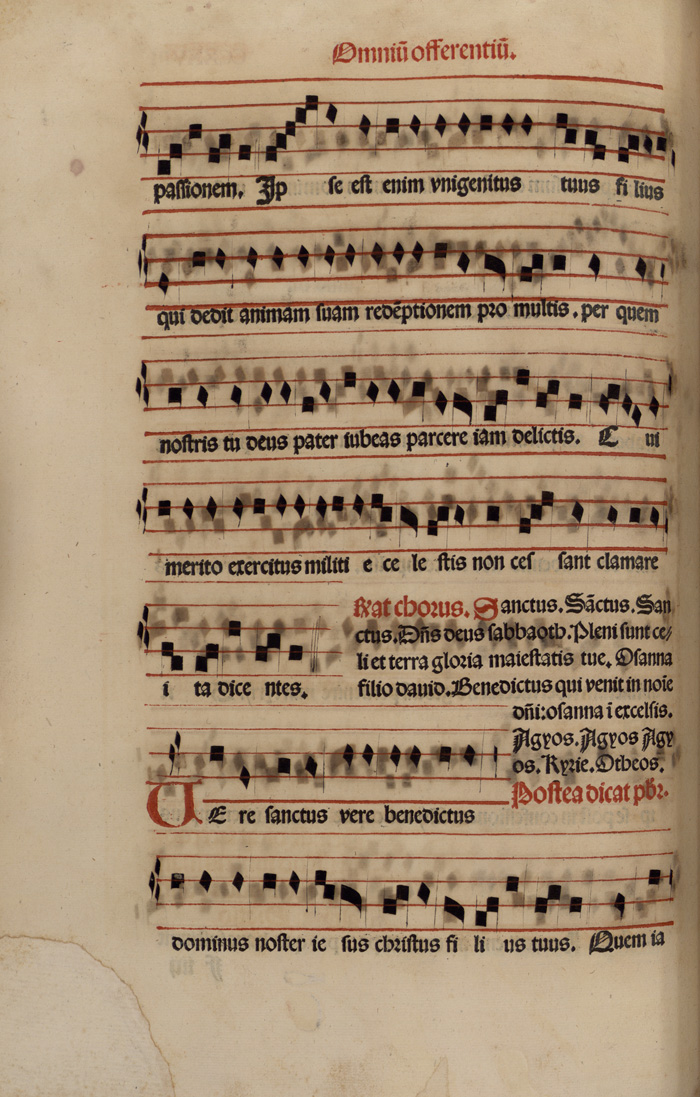 Omniū offerentiū.
passionem. Ip se est enim vnigenitus tuus fi lius
qui dedit animam suam redēptionem pro multis. per quem
nostris tu deus pater iubeas parcere iam delictis. C ui
merito exercitus militi e ce le stis non ces sant clamare
i ta dice ntes.
R̄at chorus. Sanctus. Sāctus. San
ctus. Dn̄s deus sabbaoth. Pleni sunt ce/
li et terra gloria maiestatis tue. Osanna
filio dauid. Benedictus qui venit in noīe
dn̄i: osanna ī excelsis.
Agyos. Agyos Agy
os. Kyrie. Otheos.
Postea dicat pb̄r.
UE re sanctus vere benedictus
dominus noster ie sus christus fi li us tuus. Quem ia